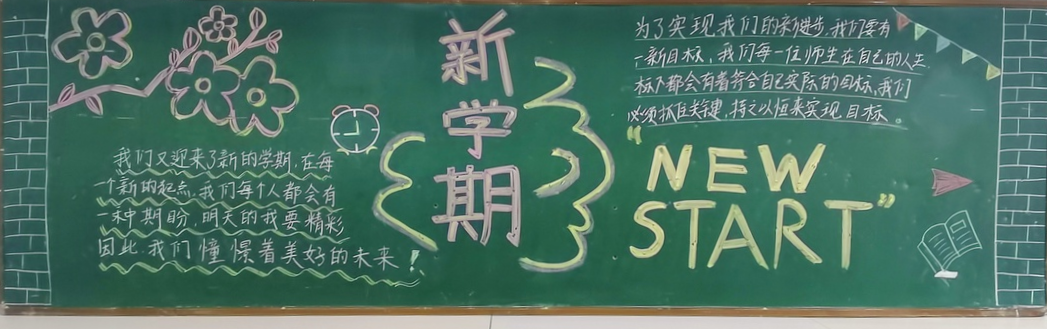 我们又迎来了新的学期,在每
一个新的起点,我们每个人都会有
一种期盼,明天的我要精彩
因此,我们憧憬着美好的未来!
新
学
期
为了实现我们的新进步,我们要有
一新目标,我们每一位师生在自己的人生
标个都会有着符合自己实际的目标,我们
必须抓住关键,持之以恒来实现目标。
"NEW
START"